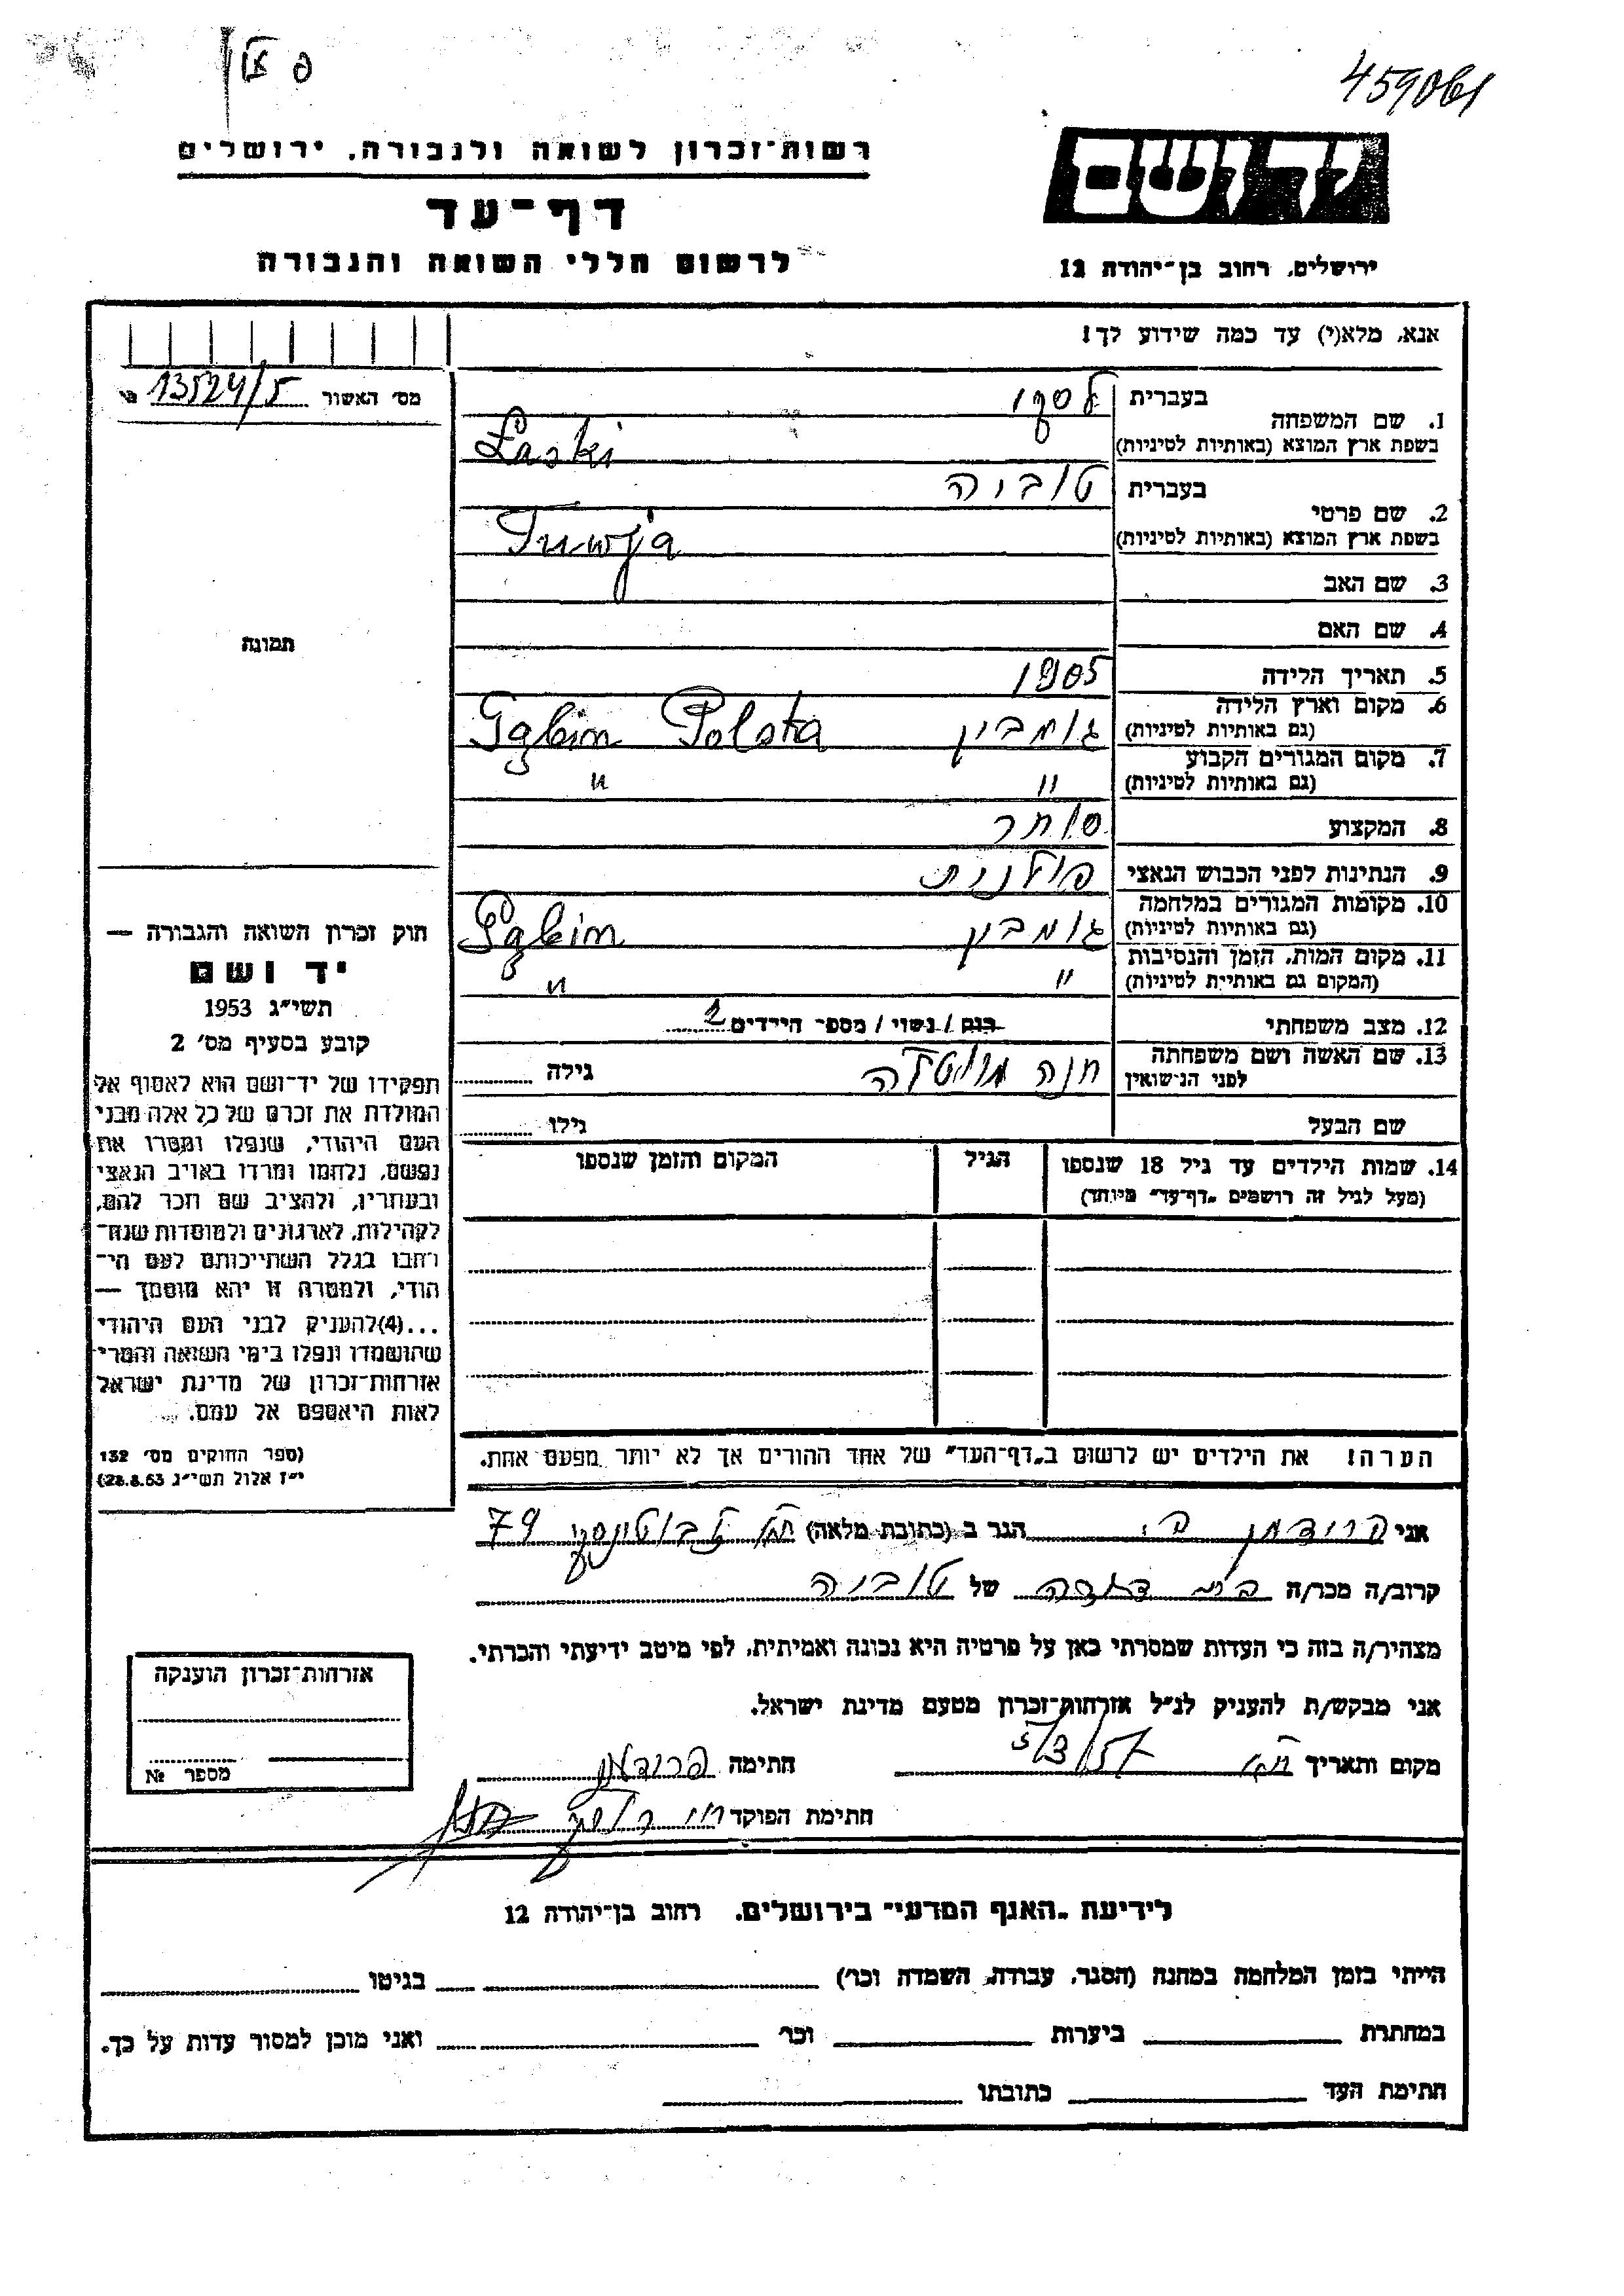 459061
רשות־זכרון לשואה ולגבורה, ירושלים
דף־עד
לרשום חללי השואה והגבורה
יד ושם
ירושלים, רחוב בן־יהודה 12
אנא, מלא(י) עד כמה שידוע לך!
מס׳ האשור 13524/5
1. שם המשפחה
בעברית לסקי
בשפת ארץ המוצא (באותיות לטיניות) Łaski
2. שם פרטי
בעברית טוביה
בשפת ארץ המוצא (באותיות לטיניות) Tuwja
3. שם האב
4. שם האם
תמונה
5. תאריך הלידה 1905
6. מקום וארץ הלידה גומבין Gąbin Polska
(גם באותיות לטיניות)
7. מקום המגורים הקבוע " "
(גם באותיות לטיניות)
8. המקצוע סוחר
9. הנתינות לפני הכבוש הנאצי פולנית
10. מקומות המגורים במלחמה גומבין Gąbin
(גם באותיות לטיניות)
11. מקום המות, הזמן והנסיבות " "
(המקום גם באותיות לטיניות)
12. מצב משפחתי רווק / נשוי / מספר הילדים
13. שם האשה ושם משפחתה
לפני הנישואין חנה גילה
שם הבעל גילו
14. שמות הילדים עד גיל 18 שנספו הגיל המקום והזמן שנספו
(מעל לגיל זה רושמים „דף־עד" מיוחד)
חוק זכרון השואה והגבורה —
יד ושם
תשי״ג 1953
קובע בסעיף מס׳ 2
תפקידו של יד־ושם הוא לאסוף אל
המולדת את זכרם של כל אלה מבני
העם היהודי, שנפלו ומסרו את
נפשם, נלחמו ומרדו באויב הנאצי
ובעוזריו, ולהציב שם וזכר להם,
לקהילות, לארגונים ולמוסדות שנח־
רבו בגלל השתייכותם לעם הי־
הודי, ולמטרה זו יהא מוסמך —
...(4) להעניק לבני העם היהודי
שהושמדו ונפלו בימי השואה והמרי־
אזרחות־זכרון של מדינת ישראל
לאות היאספם אל עמם.
(ספר החוקים מס׳ 132
י״ז אלול תשי״ג 28.8.53)
הערה! את הילדים יש לרשום ב„דף־העד" של אחד ההורים אך לא יותר מפעם אחת.
אני פרידמן הגר ב (כתובת מלאה) ז׳בוטינסקי 79
קרוב/ה מכר/ה בת דודה של טוביה
מצהיר/ה בזה כי העדות שמסרתי כאן על פרטיה היא נכונה ואמיתית, לפי מיטב ידיעתי והכרתי.
אני מבקש/ת להעניק לנ״ל אזרחות־זכרון מטעם מדינת ישראל.
מקום ותאריך ת״א 5/3/57 חתימה פרידמן
חתימת הפוקד
אזרחות־זכרון הוענקה
מספר №
לידיעת „האגף המדעי" בירושלים, רחוב בן־יהודה 12
הייתי בזמן המלחמה במחנה (הסגר, עבודה, השמדה וכו׳) בגיטו
במחתרת ביערות וכו׳ ואני מוכן למסור עדות על כך.
חתימת העד כתובתו